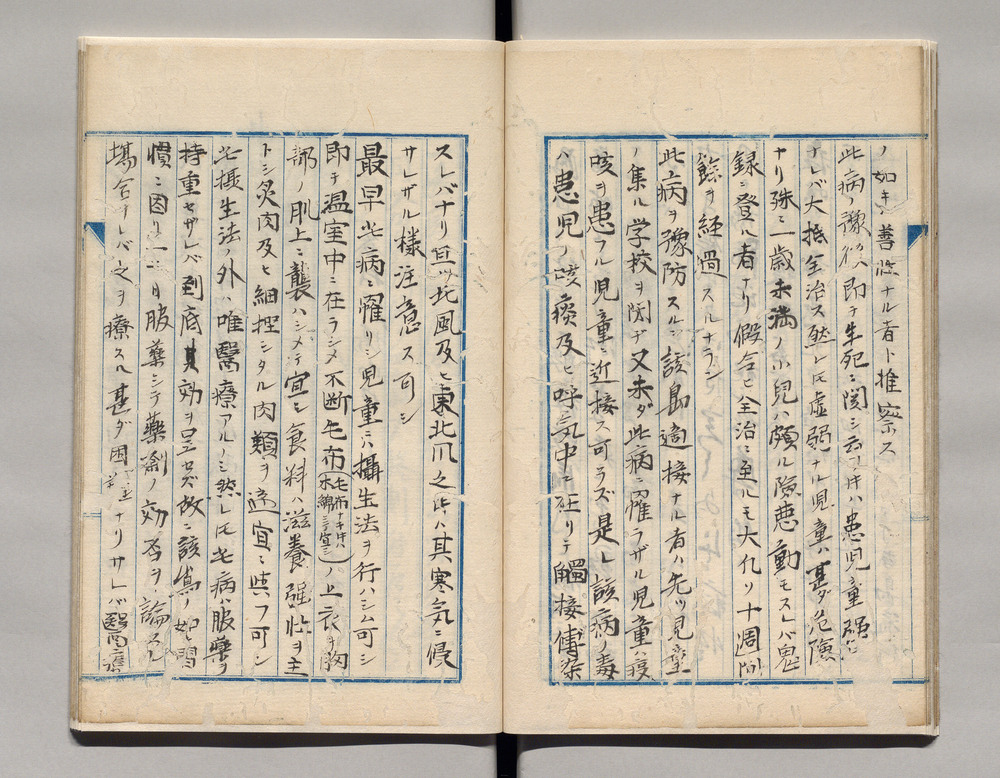 ノ如キ善性ナル者ト推察ス
此病ノ豫後即チ生死ニ関シ云フ片ハ患児童強
ナレバ大抵全治ス然レ𪜈虚弱ナル児童ハ甚ダ危険
ナリ殊ニ一歳未満ノ小児ハ頗ル険悪動モスレバ鬼
録ニ登ル者ナリ假令ヒ全治ニ至ルモ大凡ソ十週間
餘ヲ経過スルナラン
此病ヲ豫防スルニ該島適接ナル者ハ先ツ児童
ノ集ル学校ヲ閉ヂ又未ダ此病ニ罹ラザル児童ハ疫
咳ヲ患フル児童ニ近接ス可ラズ是レ該病ノ毒
ハ患児ノ咳痰及ヒ呼気中ニ在リテ觸接傳染
スレバナリ且ツ北風及ヒ東北風之片ハ其寒気ニ侵
サレザル様注意ス可シ
最早此病ニ罹リシ児童ニハ攝生法ヲ行ハシム可シ
即チ温室中ニ在ラシメ不断毛布(毛布ナキ片ハ木綿ニテ宜シ)ノ上衣ヲ胸
部ノ肌上ニ襲ハシメテ宜シ食料ハ滋養強壮ヲ主
トシ炙肉及ヒ細挫シタル肉類ヲ適宜ニ與フ可シ
此摂生法ノ外ハ唯醫療アルノミ然レ𪜈此病ハ服藥ヲ
持重セザレバ到底其効ヲ呈セズ故ニ該島ノ如キ習
慣ニ因リ一二日服藥シテ藥劑ノ効否ヲ論スル
場合ナレバ之ヲ療スル甚ダ困ナリサレバ醫療